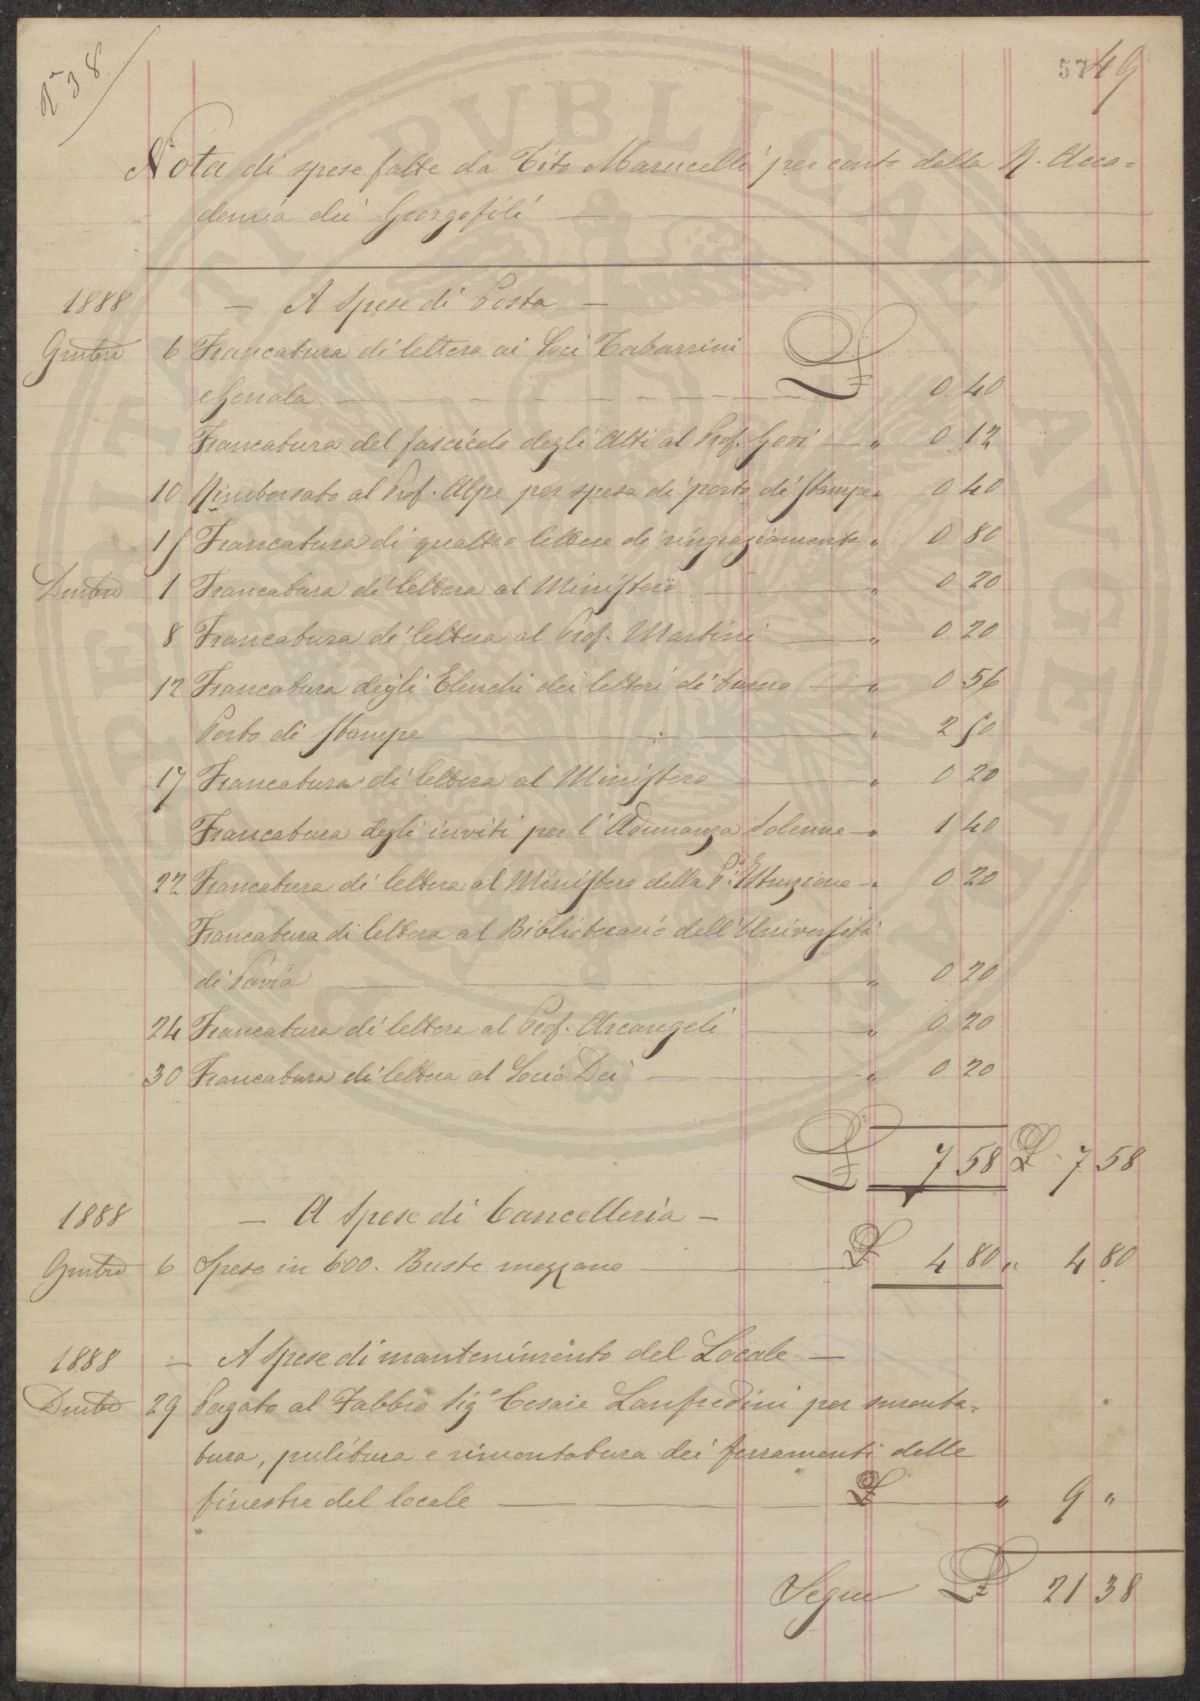 N° 38
57 49
Nota di spese fatte da Tito Marucelli per conto della R. Acca=
demia dei Georgofili
1888 — A Spese di Posta —
Gmbre 6 Francatura di lettera ai Soci Tabarrini
e Gerrata £ 0 40
Francatura del fascicolo degli Atti al Prof. Govi — " 0 12
10 Rimborsato al Prof. Alpe per spesa di porto di stampe " 0 40
15 Francatura di quattro lettere di ringraziamento " 0 80
Dmbre 1 Francatura di lettera al Ministero " 0 20
8 Francatura di lettera al Prof. Martini " 0 20
12 Francatura degli Elenchi dei lettori di turno — " 0 56
Porto di stampe " 2 50
17 Francatura di lettera al Ministero " 0 20
Francatura degli inviti per l'Adunanza Solenne — " 1 40
22 Francatura di lettera al Ministero della P.a Istruzione — " 0 20
Francatura di lettera al Bibliotecario dell'Università
di Pavia " 0 20
24 Francatura di lettera al Prof. Arcangeli " 0 20
30 Francatura di lettera al Socio Dei " 0 20
£ 7 58 £ 7 58
1888 — A Spese di Cancelleria —
Gmbre 6 Spese in 600. Buste mezzane £ 4 80 " 4 80
1888 — A Spese di mantenimento del Locale —
Dmbre 29 Pagato al Fabbro Sig.r Cesare Lanfredini per smonta=
tura, pulitura e rimontatura dei ferramenti delle
finestre del locale £ " 9 "
Segue £ 21 38
PVBLICAE